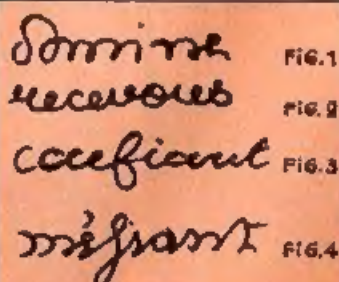 Domine FIG.1
recevous FIG.2
confiant FIG.3
méfiant FIG.4